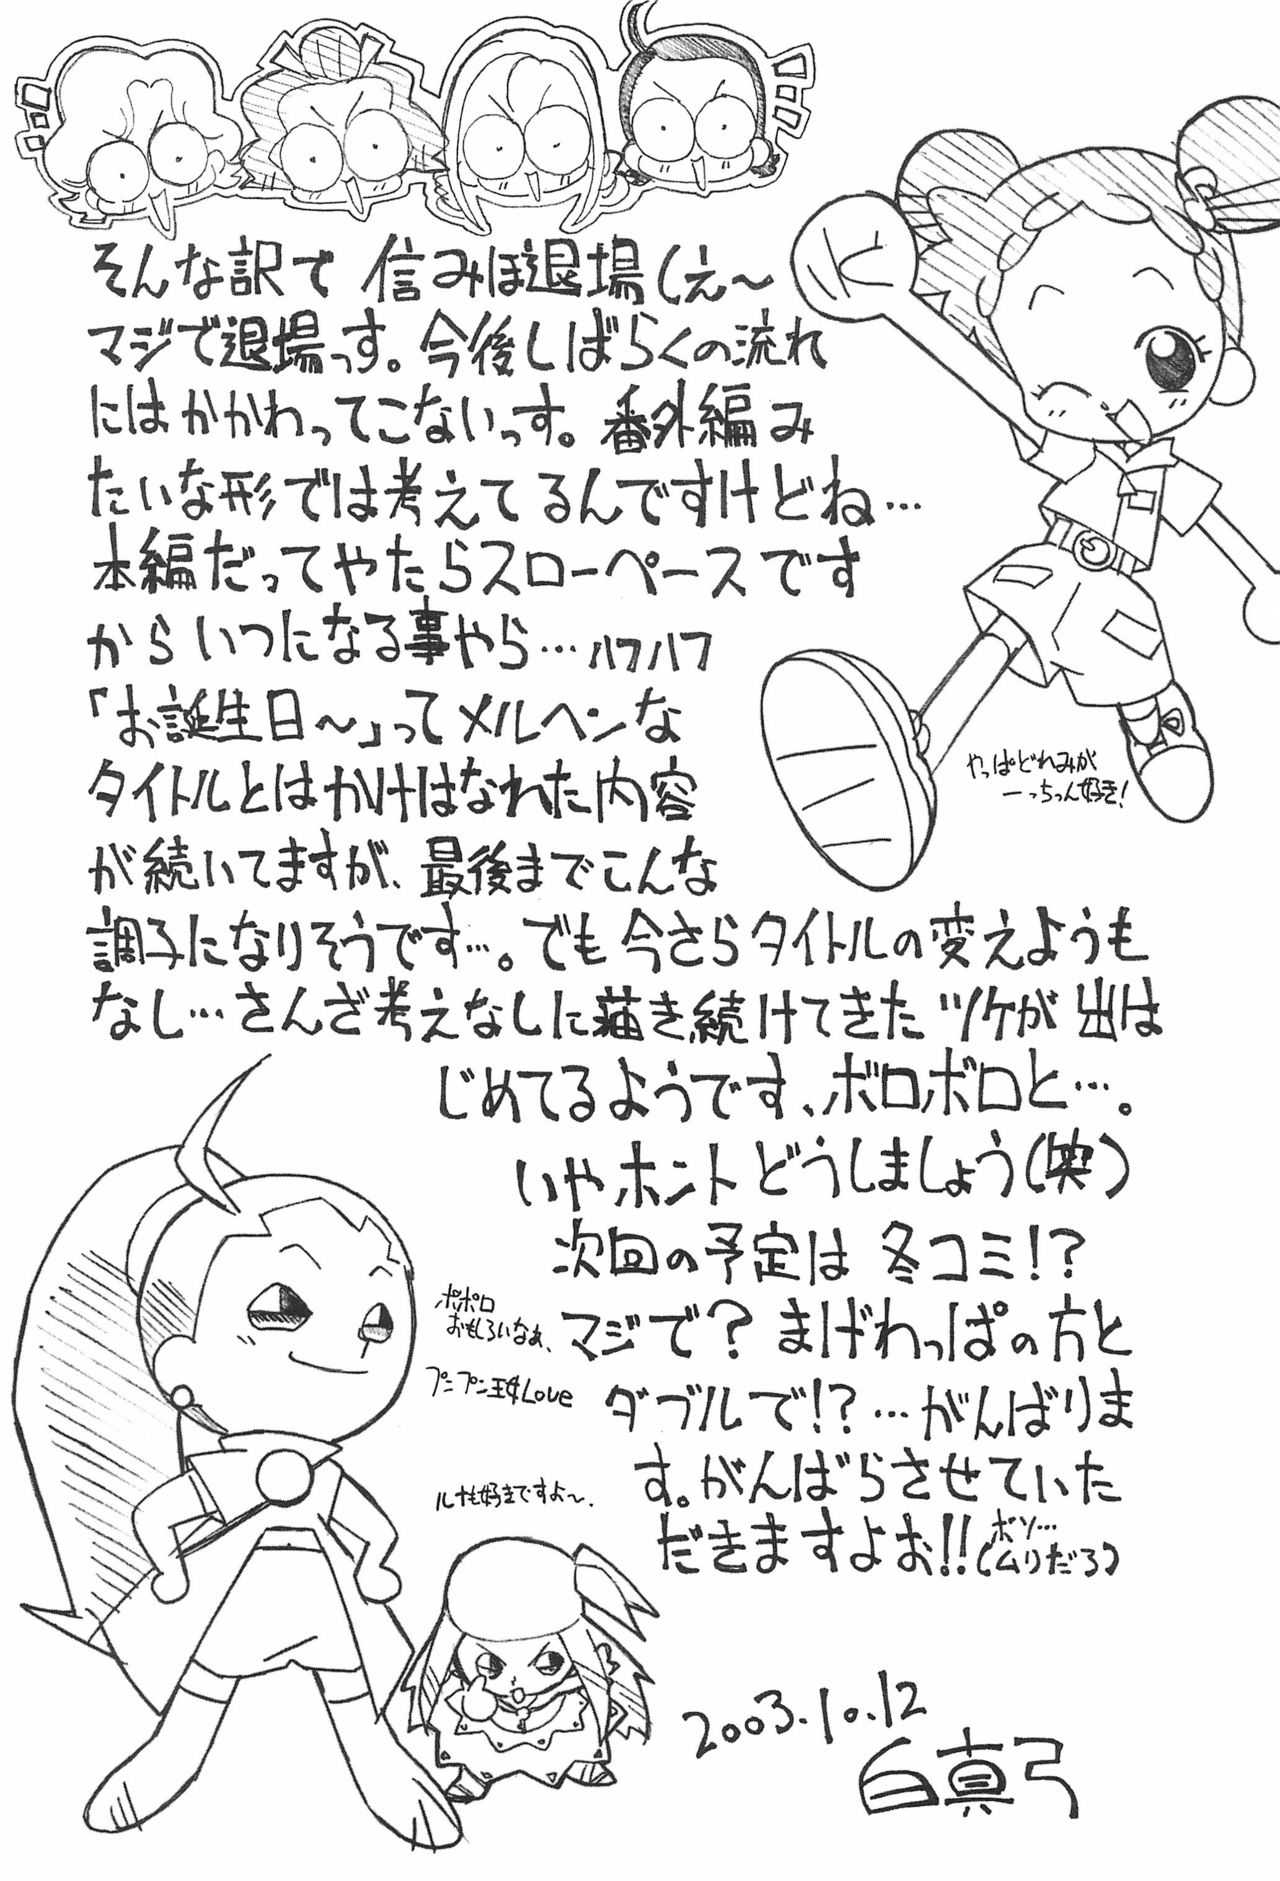 そんな訳で 信みほ退場(え〜
マジで退場っす。今後しばらくの流れ
にはかかわってこないっす。番外編み
たいな形では考えてるんですけどね…
本編だってやたらスローペースです
からいつになる事やら…ハフハフ
「お誕生日〜」ってメルヘンな
タイトルとはかけはなれた内容
が続いてますが、最後までこんな
調子になりそうです…。でも今さらタイトルの変えようも
なし…さんざ考えなしに描き続けてきたツケが出は
じめてるようです、ボロボロと…。
いやホントどうしましょう(笑)
次回の予定は 冬コミ!?
マジで?まげわっぱの方と
ダブルで!?…がんばりま
す。がんばらさせていた
だきますよぉ!!(ボソ…
ムリだろ)
やっぱどれみが
一っちっん好き!
ポポロ
おもしろいなぁ、
プニプン王女Love
ルナも好きですよ〜、
2003.10.12
白真弓